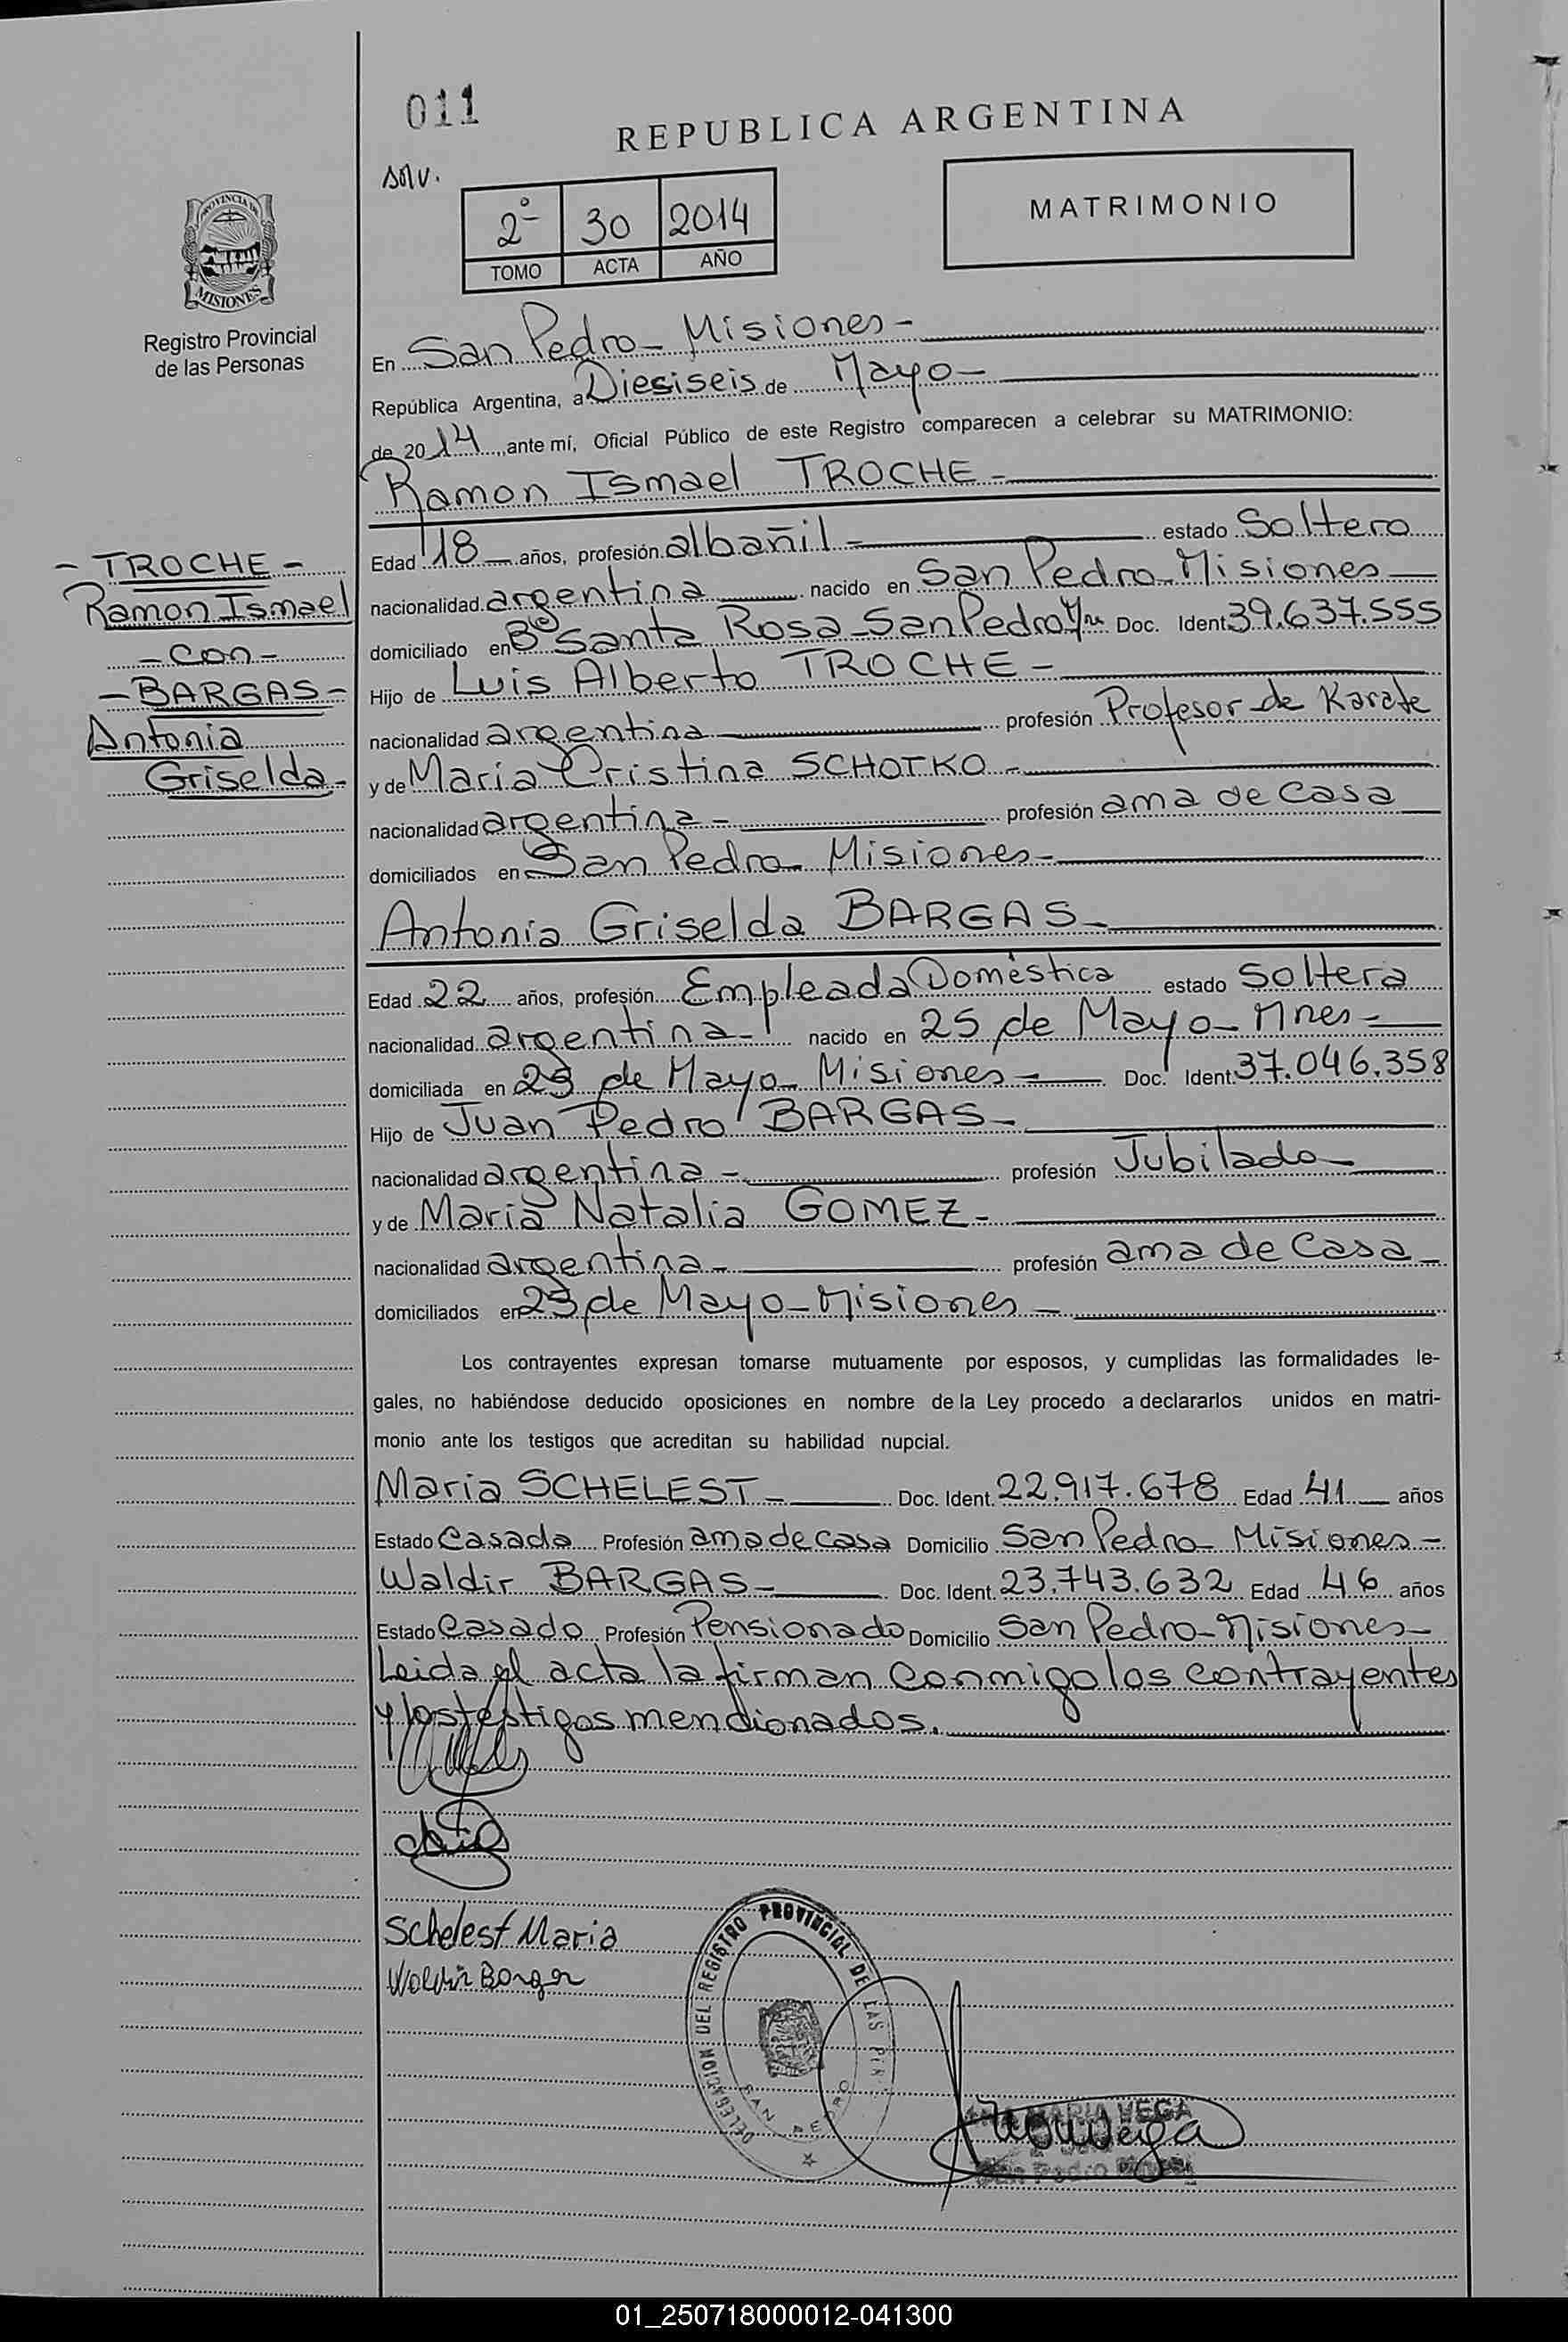 011
REPUBLICA ARGENTINA
2º 30 2014
TOMO ACTA AÑO
MATRIMONIO
PROVINCIA DE
MISIONES
Registro Provincial
de las Personas
En San Pedro - Misiones -
República Argentina, a Diesiseis de Mayo -
de 2014, ante mí, Oficial Público de este Registro comparecen a celebrar su MATRIMONIO:
Ramon Ismael TROCHE -
- TROCHE -
Ramon Ismael
- con -
- BARGAS -
Antonia
Griselda -
Edad 18 años, profesión albañil - estado Soltero
nacionalidad argentina nacido en San Pedro - Misiones
domiciliado en Bº Santa Rosa - San Pedro Doc. Ident. 39.637.555
Hijo de Luis Alberto TROCHE -
nacionalidad argentina profesión Profesor de Karate
y de Maria Cristina SCHOTKO -
nacionalidad argentina - profesión ama de casa
domiciliados en San Pedro - Misiones -
Antonia Griselda BARGAS -
Edad 22 años, profesión Empleada Doméstica estado Soltera
nacionalidad argentina - nacido en 25 de Mayo - Mnes -
domiciliada en 25 de Mayo - Misiones - Doc. Ident. 37.046.358
Hijo de Juan Pedro BARGAS -
nacionalidad argentina - profesión Jubilado
y de Maria Natalia GOMEZ -
nacionalidad argentina - profesión ama de casa -
domiciliados en 25 de Mayo - Misiones -
Los contrayentes expresan tomarse mutuamente por esposos, y cumplidas las formalidades le-
gales, no habiéndose deducido oposiciones en nombre de la Ley procedo a declararlos unidos en matri-
monio ante los testigos que acreditan su habilidad nupcial.
Maria SCHELEST - Doc. Ident. 22.917.678 Edad 41 años
Estado Casada Profesión ama de casa Domicilio San Pedro - Misiones -
Waldir BARGAS - Doc. Ident. 23.743.632 Edad 46 años
Estado Casado Profesión Pensionado Domicilio San Pedro - Misiones -
Leida el acta la firman conmigo los contrayentes
y los testigos mencionados.
Schelest Maria
DELEGACION DEL REGISTRO PROVINCIAL DE LAS PER
SAN PEDRO
ANA MARIA VEGA
San Pedro
01_250718000012-041300